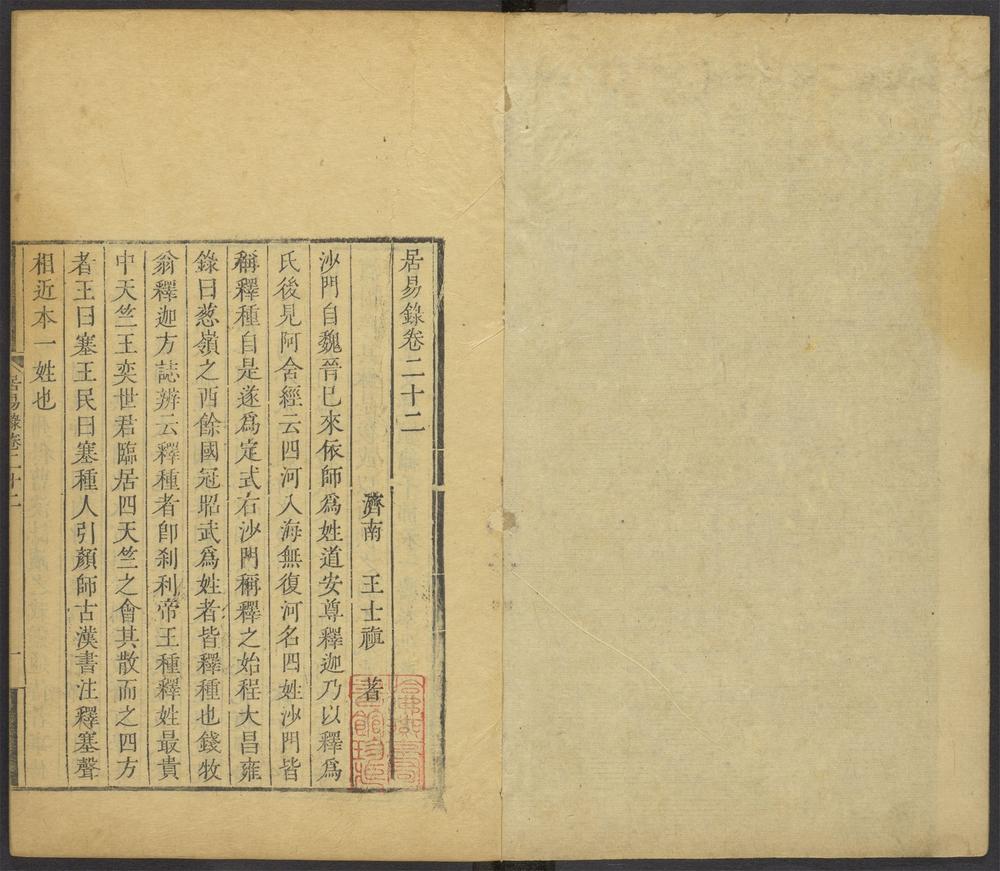 居易錄卷二十二
濟南 王士禛 著
沙門自魏晉已來依師為姓道安尊釋迦乃以釋為
氏後見阿舍經云四河入海無復河名四姓沙門皆
稱釋種自是遂為定式右沙門稱釋之始程大昌雍
錄曰葱嶺之西餘國冠昭武為姓者皆釋種也錢牧
翁釋迦方誌辨云釋種者卽刹利帝王種釋姓最貴
中天竺王奕世君臨居四天竺之會其散而之四方
者王曰塞王民曰塞種人引顏師古漢書注釋塞聲
相近本一姓也
居易錄卷二十二
一